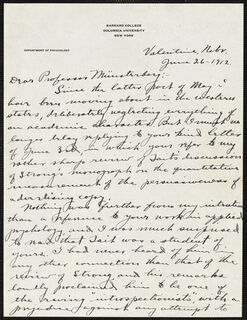 BARNARD COLLEGE
COLUMBIA UNIVERSITY
NEW YORK
DEPARTMENT OF PSYCHOLOGY
Valentine, Nebr.
June 26-1912.
Dear Professor Münsterberg:-
Since the latter part of May I
have been moving about in the western
states, deliberately neglecting everything of
an academic character. But I must no
longer delay replying to your kind letter
of June 3rd, in which you refer to my
rather sharp review of Tait's discussion
of Strong's monograph on the quantitative
measurement of the persuasiveness of
advertising copy.
Nothing was further from my intention
than a reference to your work in applied
psychology, and I was much surprised
to read that Tait was a student of
yours. I had never heard of him in
any other connection than that of the
review of Strong and his remarks
loudly proclaimed him to be one of
the raving introspectionists, with a
prejudice against any attempt to